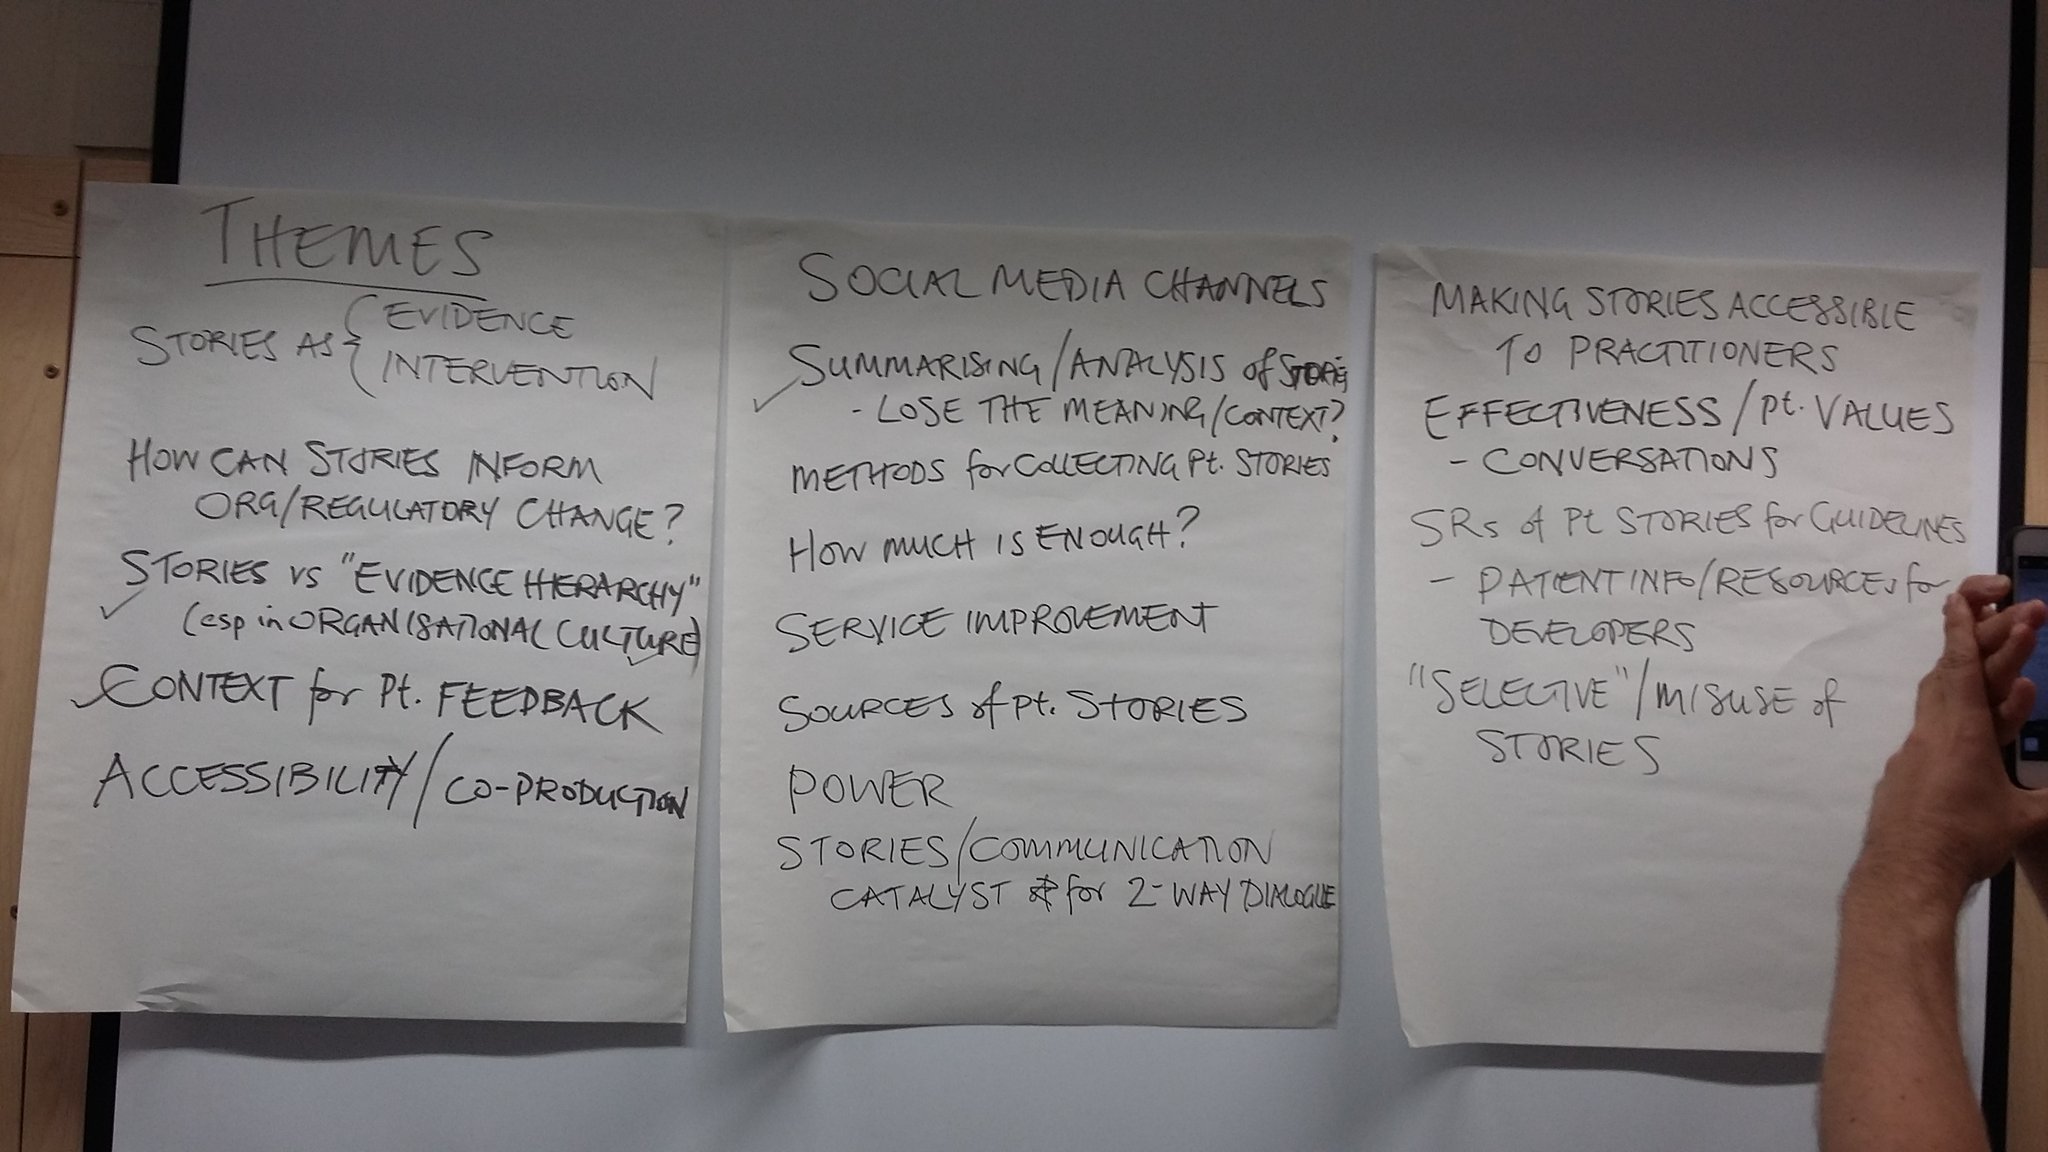 THEMES
STORIES AS { EVIDENCE
INTERVENTION
HOW CAN STORIES INFORM
ORG/REGULATORY CHANGE?
STORIES VS "EVIDENCE HIERARCHY"
✓ (esp in ORGANISATIONAL CULTURE)
✓ CONTEXT for Pt. FEEDBACK
ACCESSIBILITY/CO-PRODUCTION
SOCIAL MEDIA CHANNELS
✓ SUMMARISING/ANALYSIS of STORIES
- LOSE THE MEANING/CONTEXT?
METHODS for COLLECTING Pt. STORIES
HOW MUCH IS ENOUGH?
SERVICE IMPROVEMENT
SOURCES of Pt. STORIES
POWER
STORIES/COMMUNICATION
CATALYST for 2-WAY DIALOGUE
MAKING STORIES ACCESSIBLE
TO PRACTITIONERS
EFFECTIVENESS/Pt. VALUES
- CONVERSATIONS
SRs of Pt STORIES for GUIDELINES
- PATIENT INFO/RESOURCES for
DEVELOPERS
"SELECTIVE"/MISUSE of
STORIES